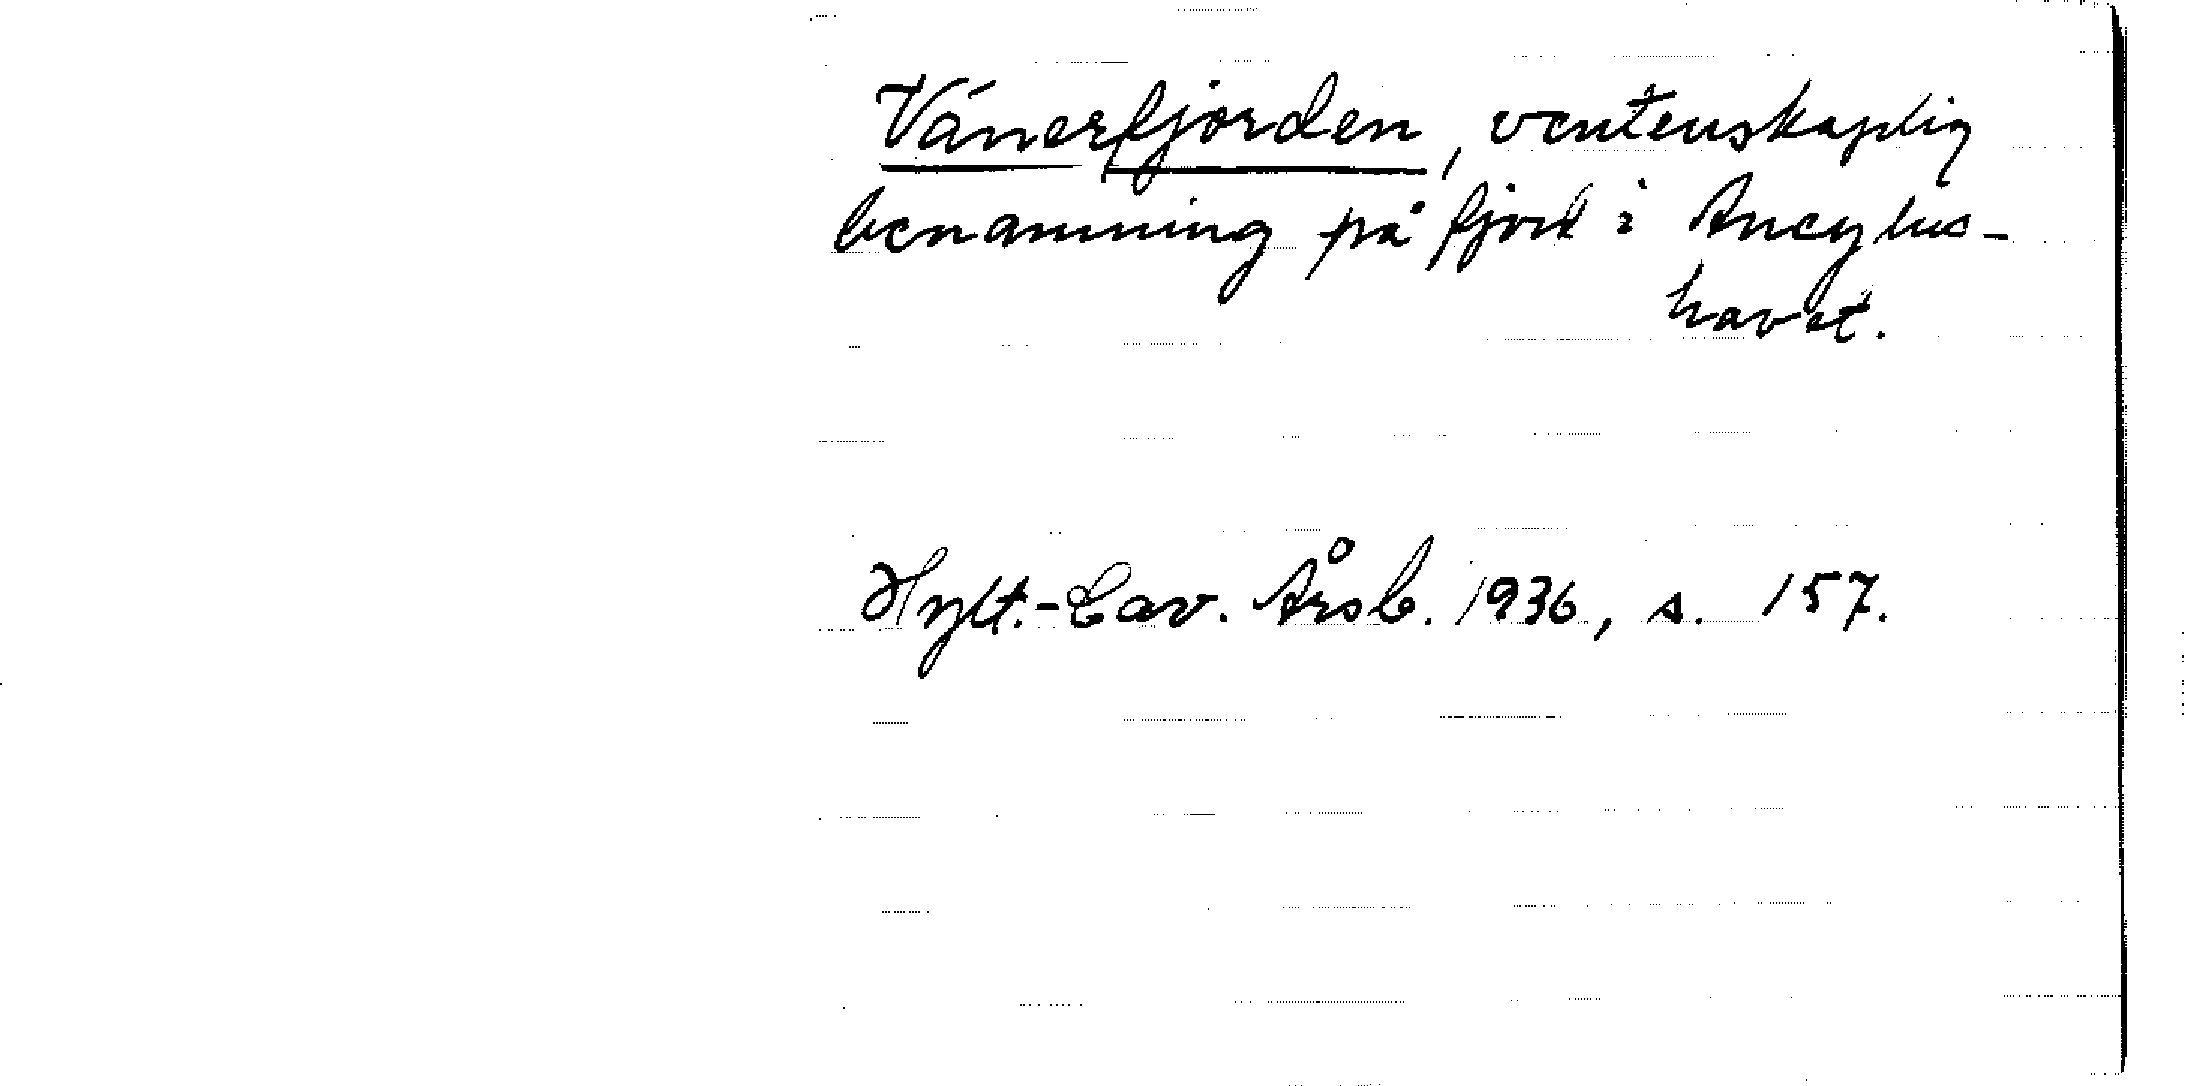 Vänerfjorden, vetenskaplig
benämning på fjord i Ancylus-
havet.
Hylt.-Cav. Årsb. 1936, s. 157.